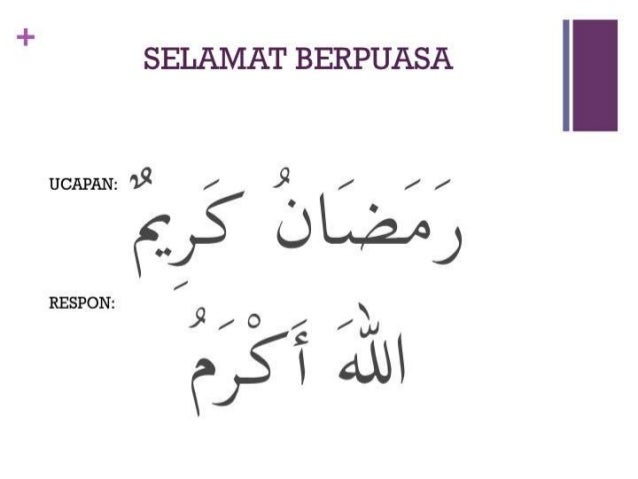 +
SELAMAT BERPUASA
UCAPAN: رَمَضَانُ كَرِيمٌ
RESPON: اللهَ أَكْرَمُ